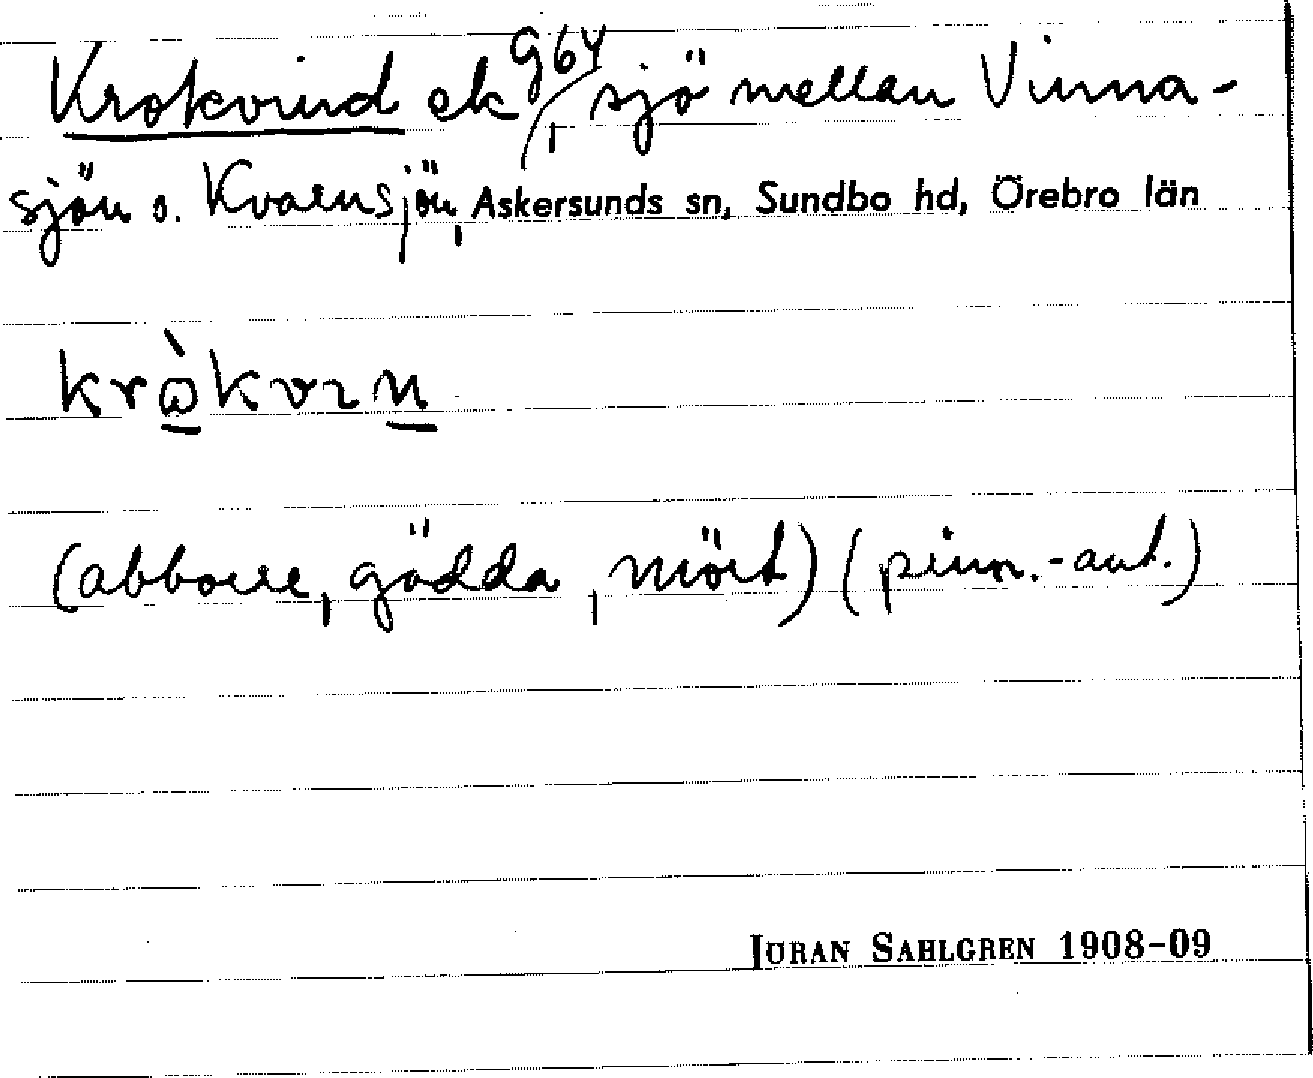 Krokvind ek 964, sjö mellan Vinna-
sjön o. Kvarnsjön, Askersunds sn, Sundbo hd, Örebro län
kròkvın
(abborre, gädda, mört) (pinn.-ant.)
JÖRAN SAHLGREN 1908-09